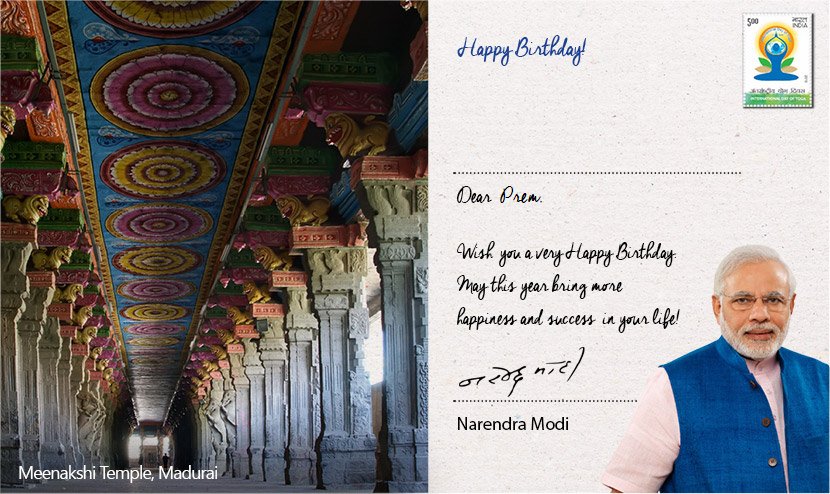 Happy Birthday!
5.00 भारत INDIA
अंतर्राष्ट्रीय योग दिवस
INTERNATIONAL DAY OF YOGA
Dear Prem,
Wish you a very Happy Birthday.
May this year bring more
happiness and success in your life!
नरेन्द्र मोदी
Narendra Modi
Meenakshi Temple, Madurai